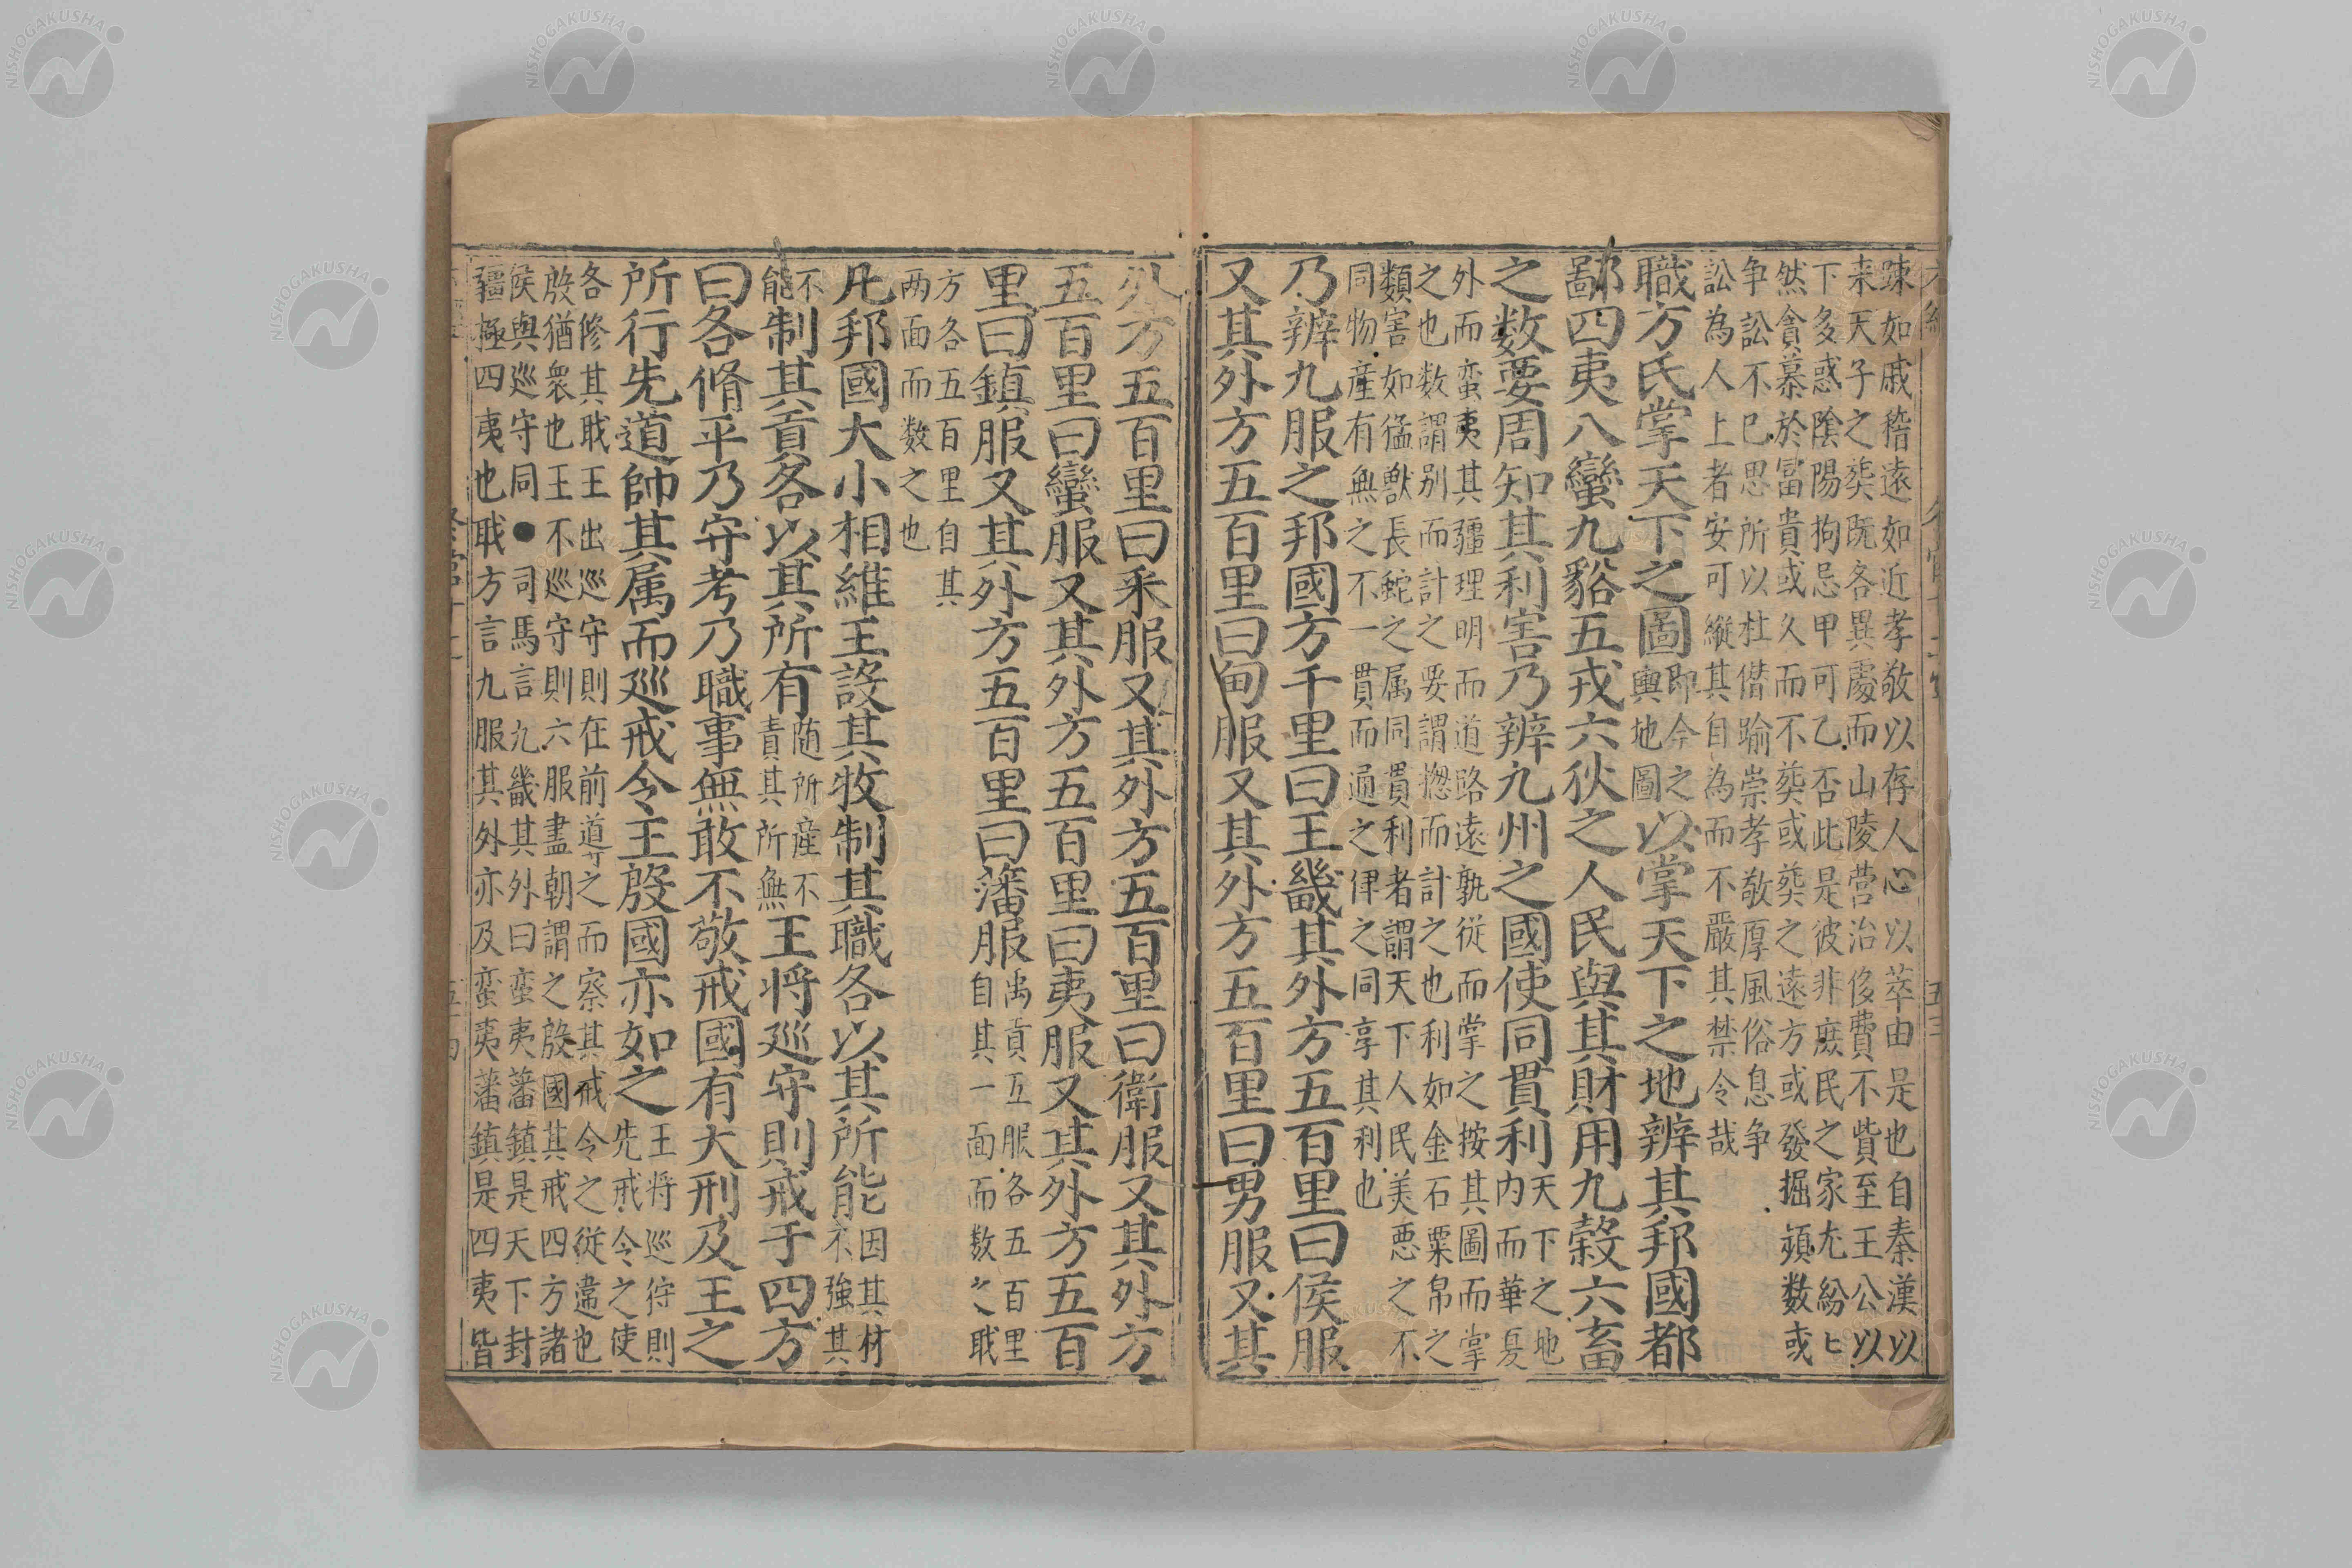 踈如戚稽遠如近孝敬以存人心以萃由是也自秦漢以
来天子之葬既各異處而山陵营治侈費不貲至王公以
下多惑隂陽拘忌甲可乙否此是彼非庶民之家尤紛〻
然貪慕於冨貴或久而不葬或葬之遠方或發掘頻数或
争訟不已思所以杜僣踰崇孝敬厚風俗息争
訟為人上者安可縦其自為而不嚴其禁令哉
職方氏掌天下之圖
即今之
輿地圖
以掌天下之地辨其邦國都
鄙四夷八蠻九貉五戎六狄之人民與其財用九榖六畜
之数要周知其利害乃辨九州之國使同貫利
天下之地
内而華夏
外而蛮夷其疆理明而道路遠孰従而掌之按其圖而掌
之也数謂别而計之要謂揔而計之也利如金石粟帛之
類害如猛獸長蛇之属同貫利者謂天下人民美悪之不
同物産有無之不一貫而通之俾之同享其利也
乃辨九服之邦國方千里曰王畿其外方五百里曰侯服
又其外方五百里曰甸服又其外方五百里曰男服又其
外方五百里曰采服又其外方五百里曰衛服又其外方
五百里曰蠻服又其外方五百里曰夷服又其外方五百
里曰鎮服又其外方五百里曰藩服
禹貢五服各五百里
自其一面而数之职
方各五百里自其
两面而数之也
凡邦國大小相維王設其牧制其職各以其所能
因其材
不強其
不
能
制其貢各以其所有
随所産不
責其所無
王将巡守則戒于四方
曰各脩平乃守考乃職事無敢不敬戒國有大刑及王之
所行先道帥其属而巡戒令王殷國亦如之
王将巡狩則
先戒令之使
各修其职王出巡守則在前道之而察其戒令之従違也
殷猶衆也王不巡守則六服盡朝謂之殷國其戒四方諸
侯與巡守同●司馬言九畿其外曰蛮夷藩鎮是天下封
疆極四夷也职方言九服其外亦及蛮夷藩鎮是四夷皆